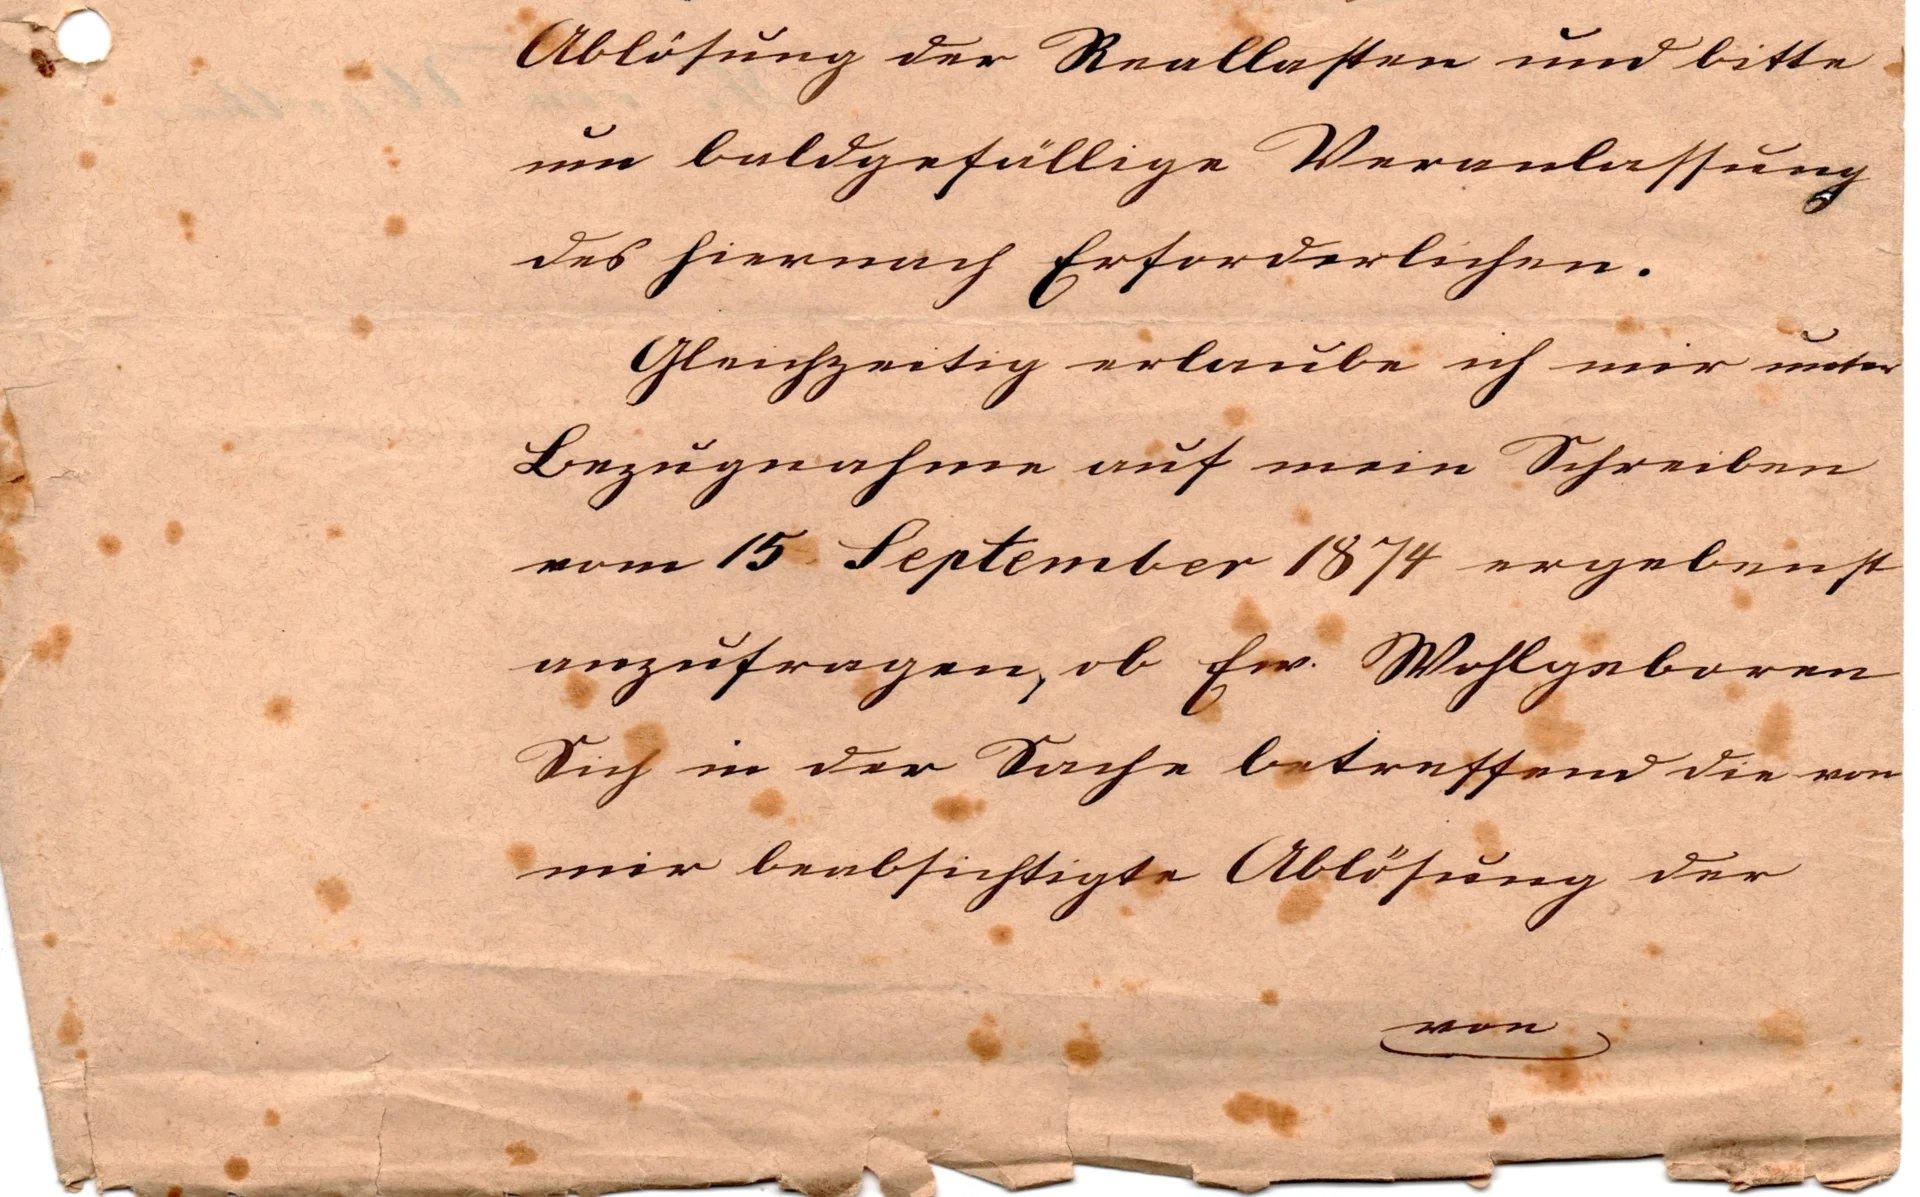 Ablösung der Reallasten und bitte
um baldgefällige Veranlassung
des hiernach Erforderlichen.
Gleichzeitig erlaube ich mir unter
Bezugnahme auf mein Schreiben
vom 15 September 1874 ergebenst
anzufragen, ob Ew. Wohlgeboren
Sich in der Sache betreffend die von
mir beabsichtigte Ablösung der
von